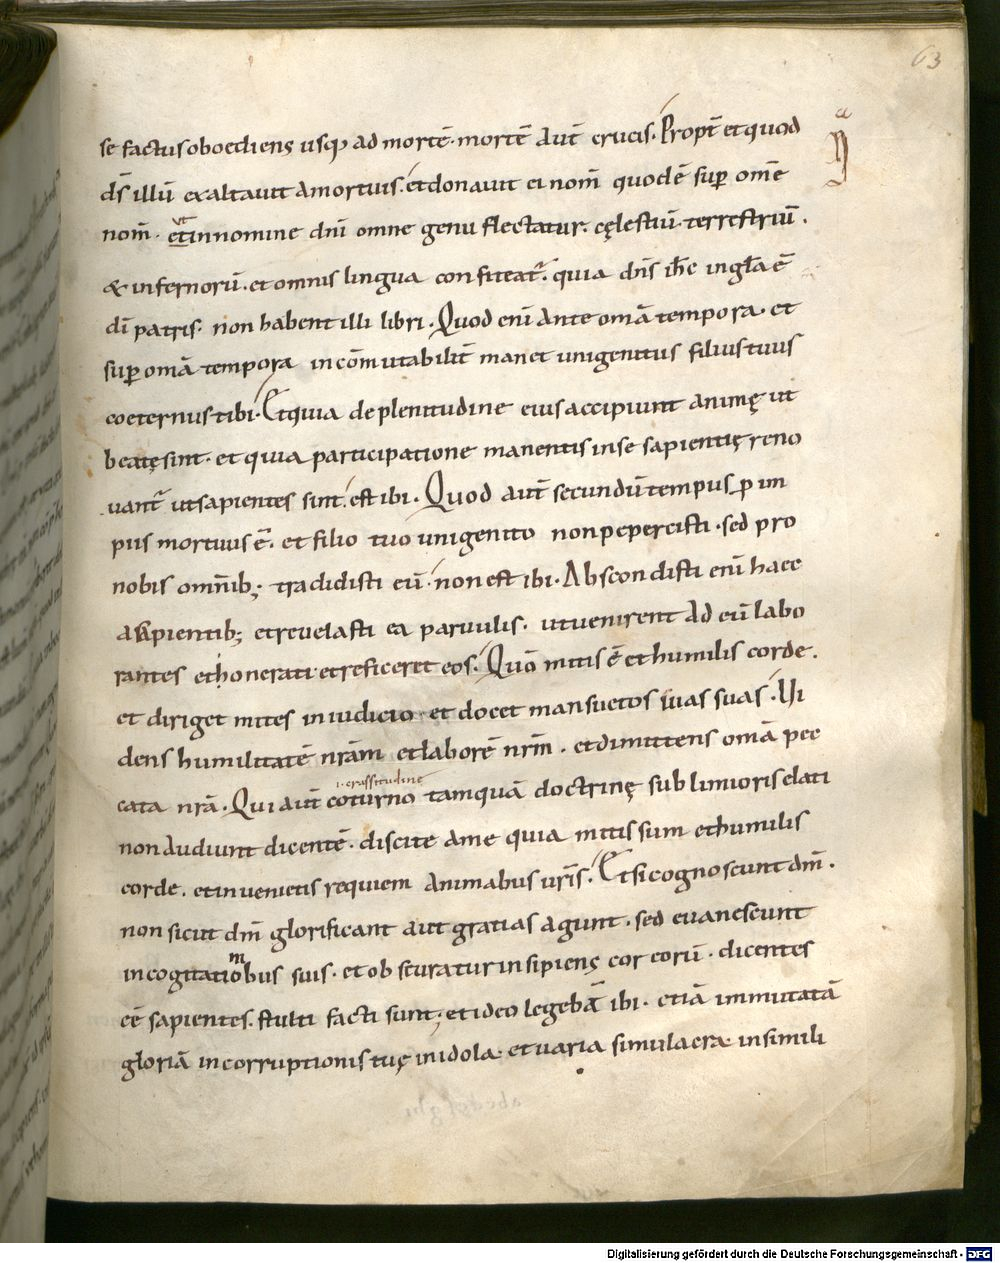 63
se factus oboediens usq; ad mortē. mortē aut̄ crucis. Propt̄ et quod
ds̄ illū exaltauit a mortuis. et donauit ei nom̄ quod ē sup̄ om̄e
ut
nom̄. et in nomine dn̄i omne genu flectatur. cęlestiū. terrestriū.
& infernorū. et omnis lingua confiteat̄. quia dn̄s ih̄c in gl̄a ē
dī patris. non habent illi libri. Quod enī ante om̄a tempora. et
sup̄ om̄a tempora incōmutabilit̄ manet unigenitus filius tuus
coeternus tibi. Et quia de plenitudine eius accipiunt animę ut
beatę sint. et quia participatione manentis in se sapientię reno
uant̄ ut sapientes sint. est ibi. Quod aut̄ secundū tempus p im
piis mortuus ē. et filio tuo unigenito non pepercisti. sed pro
nobis omnib; tradidisti eū. non est ibi. Abscondisti enī haec
a sapientib; et reuelasti ea paruulis. ut uenirent ad eū labo
rantes et honerati et reficeret eos. Quō mitis ē et humilis corde.
et diriget mites in iudicio. et docet mansuetos uias suas. Ui
dens humilitatē nr̄am et laborē nr̄m. et dimittens om̄a pec
i. crassitudine
cata nr̄a. Qui aut̄ coturno tamquā doctrinę sublimioris elati
non audiunt dicentē. discite a me quia mitis sum et humilis
corde. et inuenietis requiem animabus ur̄is. Et si cognoscunt dm̄.
non sicut dm̄ glorificant aut gratias agunt. sed euanescunt
in cogitationibus suis. et obscuratur insipiens cor eorū. dicentes
eē sapientes. stulti facti sunt. et ideo legebā ibi. etiā immutatā
gloriā incorruptionis tuę in idola et uaria simulacra in simili
Digitalisierung gefördert durch die Deutsche Forschungsgemeinschaft - DFG